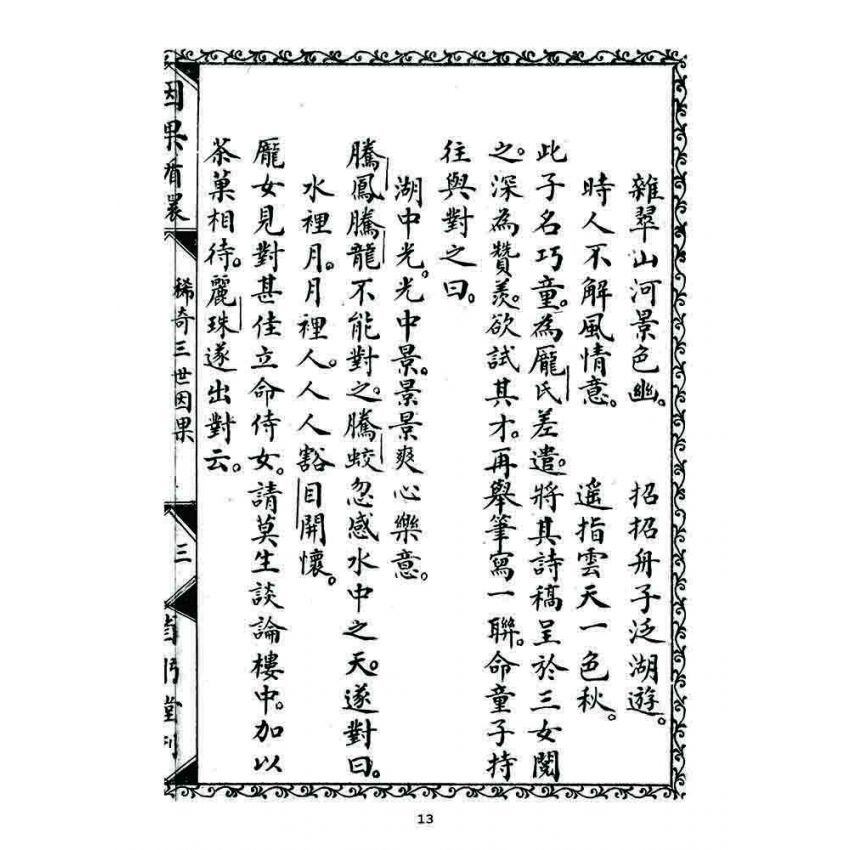 雜翠山河景色幽。 招招舟子泛湖遊。
時人不解風情意。 遥指雲天一色秋。
此子名巧童。為龐氏差遣。將其詩稿呈於三女閱
之。深為贊羨。欲試其才。再舉筆寫一聯。命童子持
往與對之曰。
湖中光。光中景。景景爽心樂意。
騰鳳騰龍不能對之。騰蛟忽感水中之天。遂對曰。
水裡月。月裡人。人人豁目開懷。
龎女見對甚佳立命侍女。請莫生談論樓中。加以
茶菓相待。麗珠遂出對云。
因果
稀奇三世因果
三
堂
13